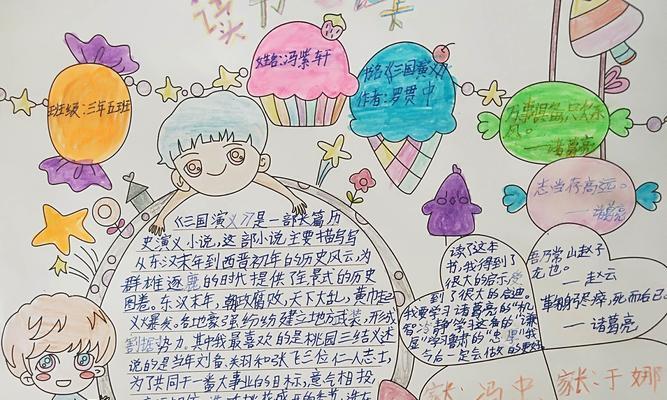 读书
班级:三年五班
姓名:冯紫轩
书名《三国演义》
作者:罗贯中
万事俱备,只欠东
风。
——诸葛亮
志当存高远。
——诸葛亮
《三国演义》是一部长篇历
史演义小说,这部小说主要描写
从东汉末年到西晋初年的历史风云,为
群雄逐鹿的时代提供了全景式的历史
图卷。东汉末年,朝政腐败,天下大乱,黄巾起
义爆发。各地豪强纷纷建立地方武装,形成
割据势力。其中我最喜欢的是桃园三结义述
说的是当年刘备、关羽和张飞三位仁人志士,
为了共同干一番大事业的目标,意气相投,
读了这本
书,我得到了
很大的启示,受
到了很大的启迪。
我要学习诸葛亮的“机
智冷静”学习
学习鲁肃的“忠
今后一定会做的更好
吾乃常山赵子
龙也。
——赵云
鞠躬尽瘁,死而后已
——诸葛亮
家长:冯中 家长:于娜